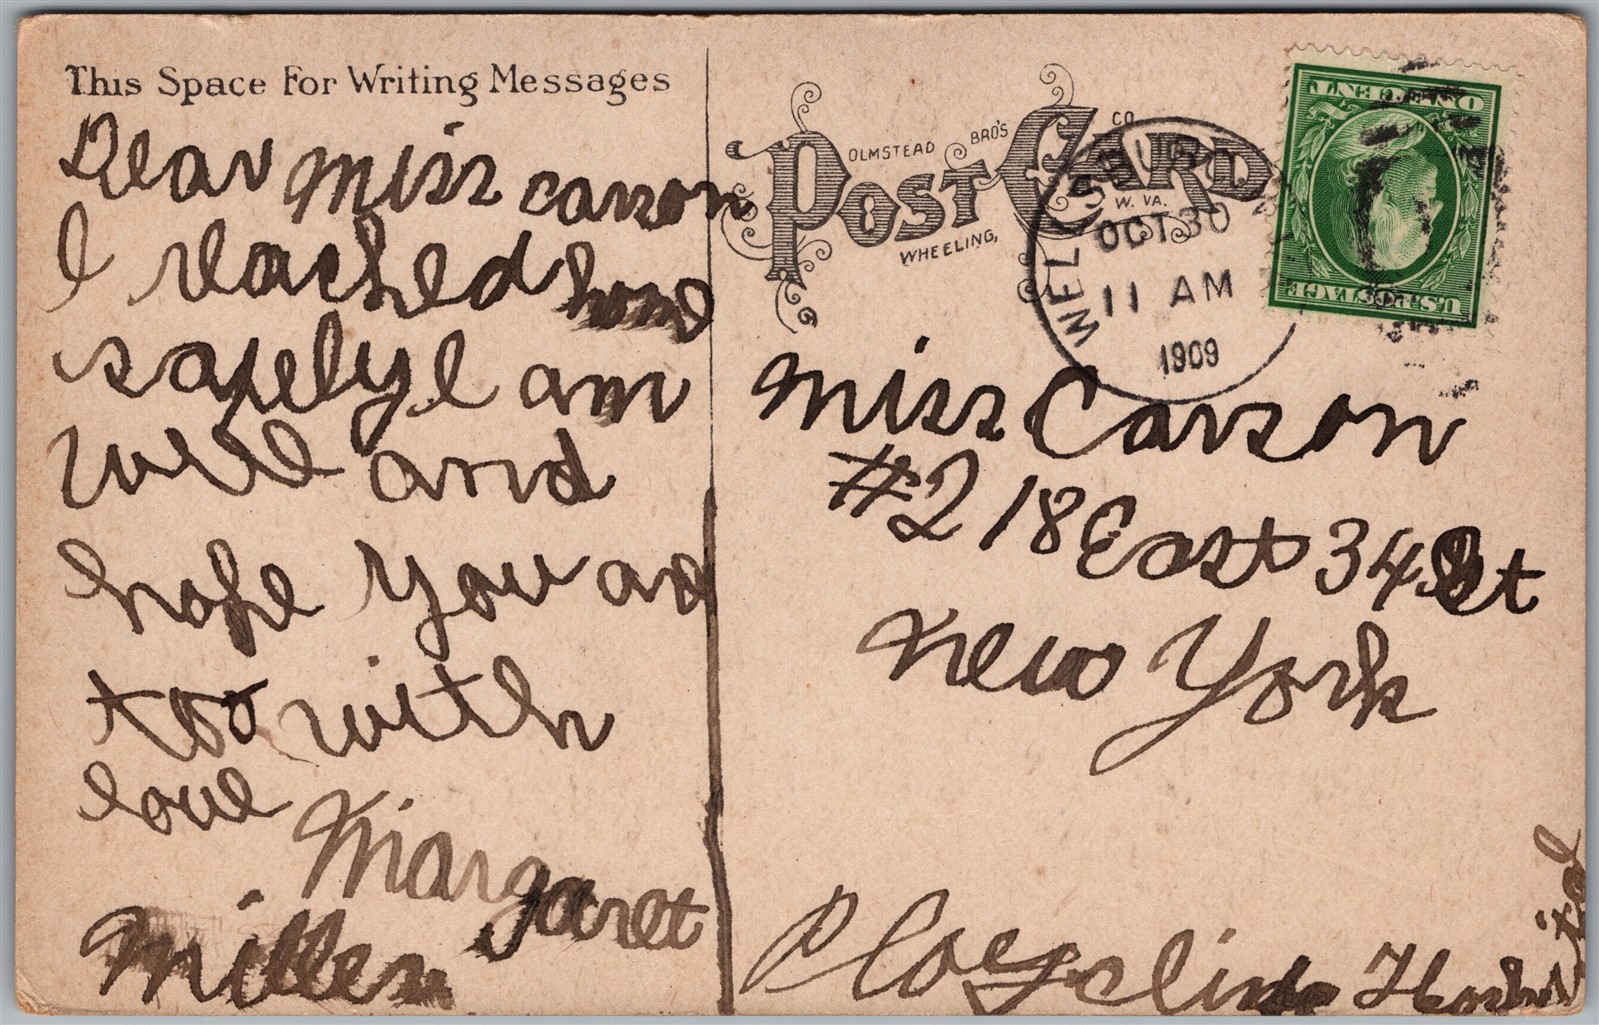 This Space For Writing Messages
Dear Miss Carson
I reached home
safely I am
well and
hope you are
too with
love Margaret
Millen
OLMSTEAD BRO'S CO.
POST CARD
WHEELING, W. VA.
WELLSBURG
OCT 30
11 AM
1909
ONE CENT
U.S. POSTAGE
Miss Carson
#218 East 34 St
New York
Hospital